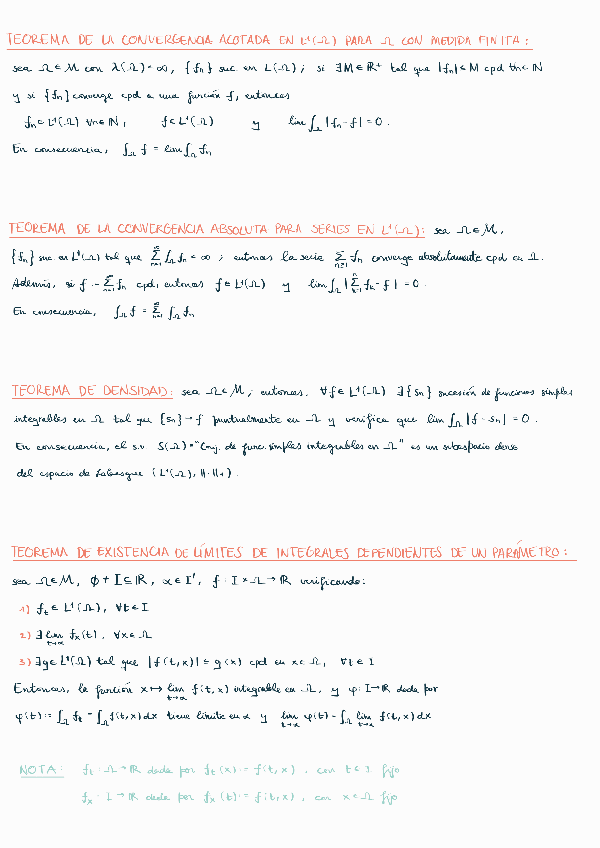 TEOREMA DE LA CONVERGENCIA ACOTADA EN L¹(Ω) PARA Ω CON MEDIDA FINITA:
sea Ω∈M con λ(Ω)<∞, {fn} suc. en L(Ω); si ∃M∈ℝ⁺ tal que |fn|≤M cpd ∀n∈ℕ
y si {fn} converge cpd a una función f, entonces
fn∈L¹(Ω) ∀n∈ℕ, f∈L¹(Ω) y lim ∫Ω |fn-f| = 0.
En consecuencia, ∫Ω f = lim ∫Ω fn
TEOREMA DE LA CONVERGENCIA ABSOLUTA PARA SERIES EN L¹(Ω): sea Ω∈M,
{fn} suc. en L¹(Ω) tal que ∑n=1^∞ ∫Ω fn < ∞; entonces la serie ∑n≥1 fn converge absolutamente cpd en Ω.
Además, si f := ∑n=1^∞ fn cpd, entonces f∈L¹(Ω) y lim ∫Ω |∑k=1^n fk - f| = 0.
En consecuencia, ∫Ω f = ∑n=1^∞ ∫Ω fn
TEOREMA DE DENSIDAD: sea Ω∈M; entonces, ∀f∈L¹(Ω) ∃{sn} sucesión de funciones simples
integrables en Ω tal que {sn}→f puntualmente en Ω y verifica que lim ∫Ω |f-sn| = 0.
En consecuencia, el s.v. S(Ω)="Conj. de func. simples integrables en Ω" es un subespacio denso
del espacio de Lebesgue (L¹(Ω), ||·||₁).
TEOREMA DE EXISTENCIA DE LÍMITES DE INTEGRALES DEPENDIENTES DE UN PARÁMETRO:
sea Ω∈M, ∅≠I⊆ℝ, α∈I', f: I×Ω→ℝ verificando:
1) ft∈L¹(Ω), ∀t∈I
2) ∃ lim t→α fx(t), ∀x∈Ω
3) ∃g∈L¹(Ω) tal que |f(t,x)| ≤ g(x) cpd en x∈Ω, ∀t∈I
Entonces, la función x↦ lim t→α f(t,x) integrable en Ω, y φ: I→ℝ dada por
φ(t):= ∫Ω ft = ∫Ω f(t,x)dx tiene límite en α y lim t→α φ(t) = ∫Ω lim t→α f(t,x)dx
NOTA: ft: Ω→ℝ dada por ft(x):= f(t,x), con t∈I fijo
fx: I→ℝ dada por fx(t):= f(t,x), con x∈Ω fijo